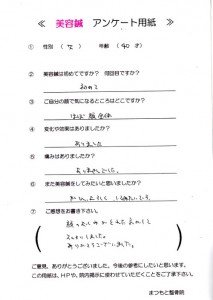 ≪ 美容鍼 アンケート用紙 ≫
① 性別 ( 女 ) 年齢 ( 40 才)
② 美容鍼は初めてですか? 何回目ですか?
初めて
③ ご自分の顔で気になるところはどこですか?
ほぼ顔全体
④ 変化や効果はありましたか?
ありました
⑤ 痛みはありましたか?
ありませんでした。
⑥ また美容鍼をしてみたいと思いましたか?
⑦ ご感想をお書き下さい。
ありがとうございました。
ご意見、ありがとうございました。今後の参考にしたいと思います。
この用紙は、HPや、院内掲示に使わせていただくことをご了承下さい。
まつもと整骨院